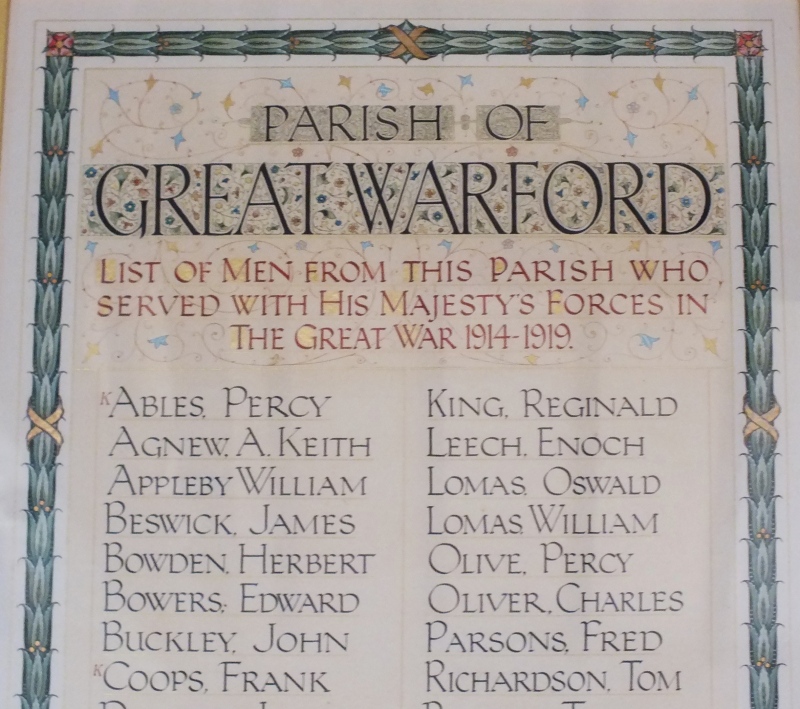 PARISH OF
GREAT WARFORD
LIST OF MEN FROM THIS PARISH WHO
SERVED WITH HIS MAJESTY'S FORCES IN
THE GREAT WAR 1914-1919.
K ABLES, PERCY
AGNEW, A. KEITH
APPLEBY WILLIAM
BESWICK, JAMES
BOWDEN, HERBERT
BOWERS, EDWARD
BUCKLEY, JOHN
K COOPS, FRANK
KING, REGINALD
LEECH, ENOCH
LOMAS, OSWALD
LOMAS, WILLIAM
OLIVE, PERCY
OLIVER, CHARLES
PARSONS, FRED
RICHARDSON, TOM